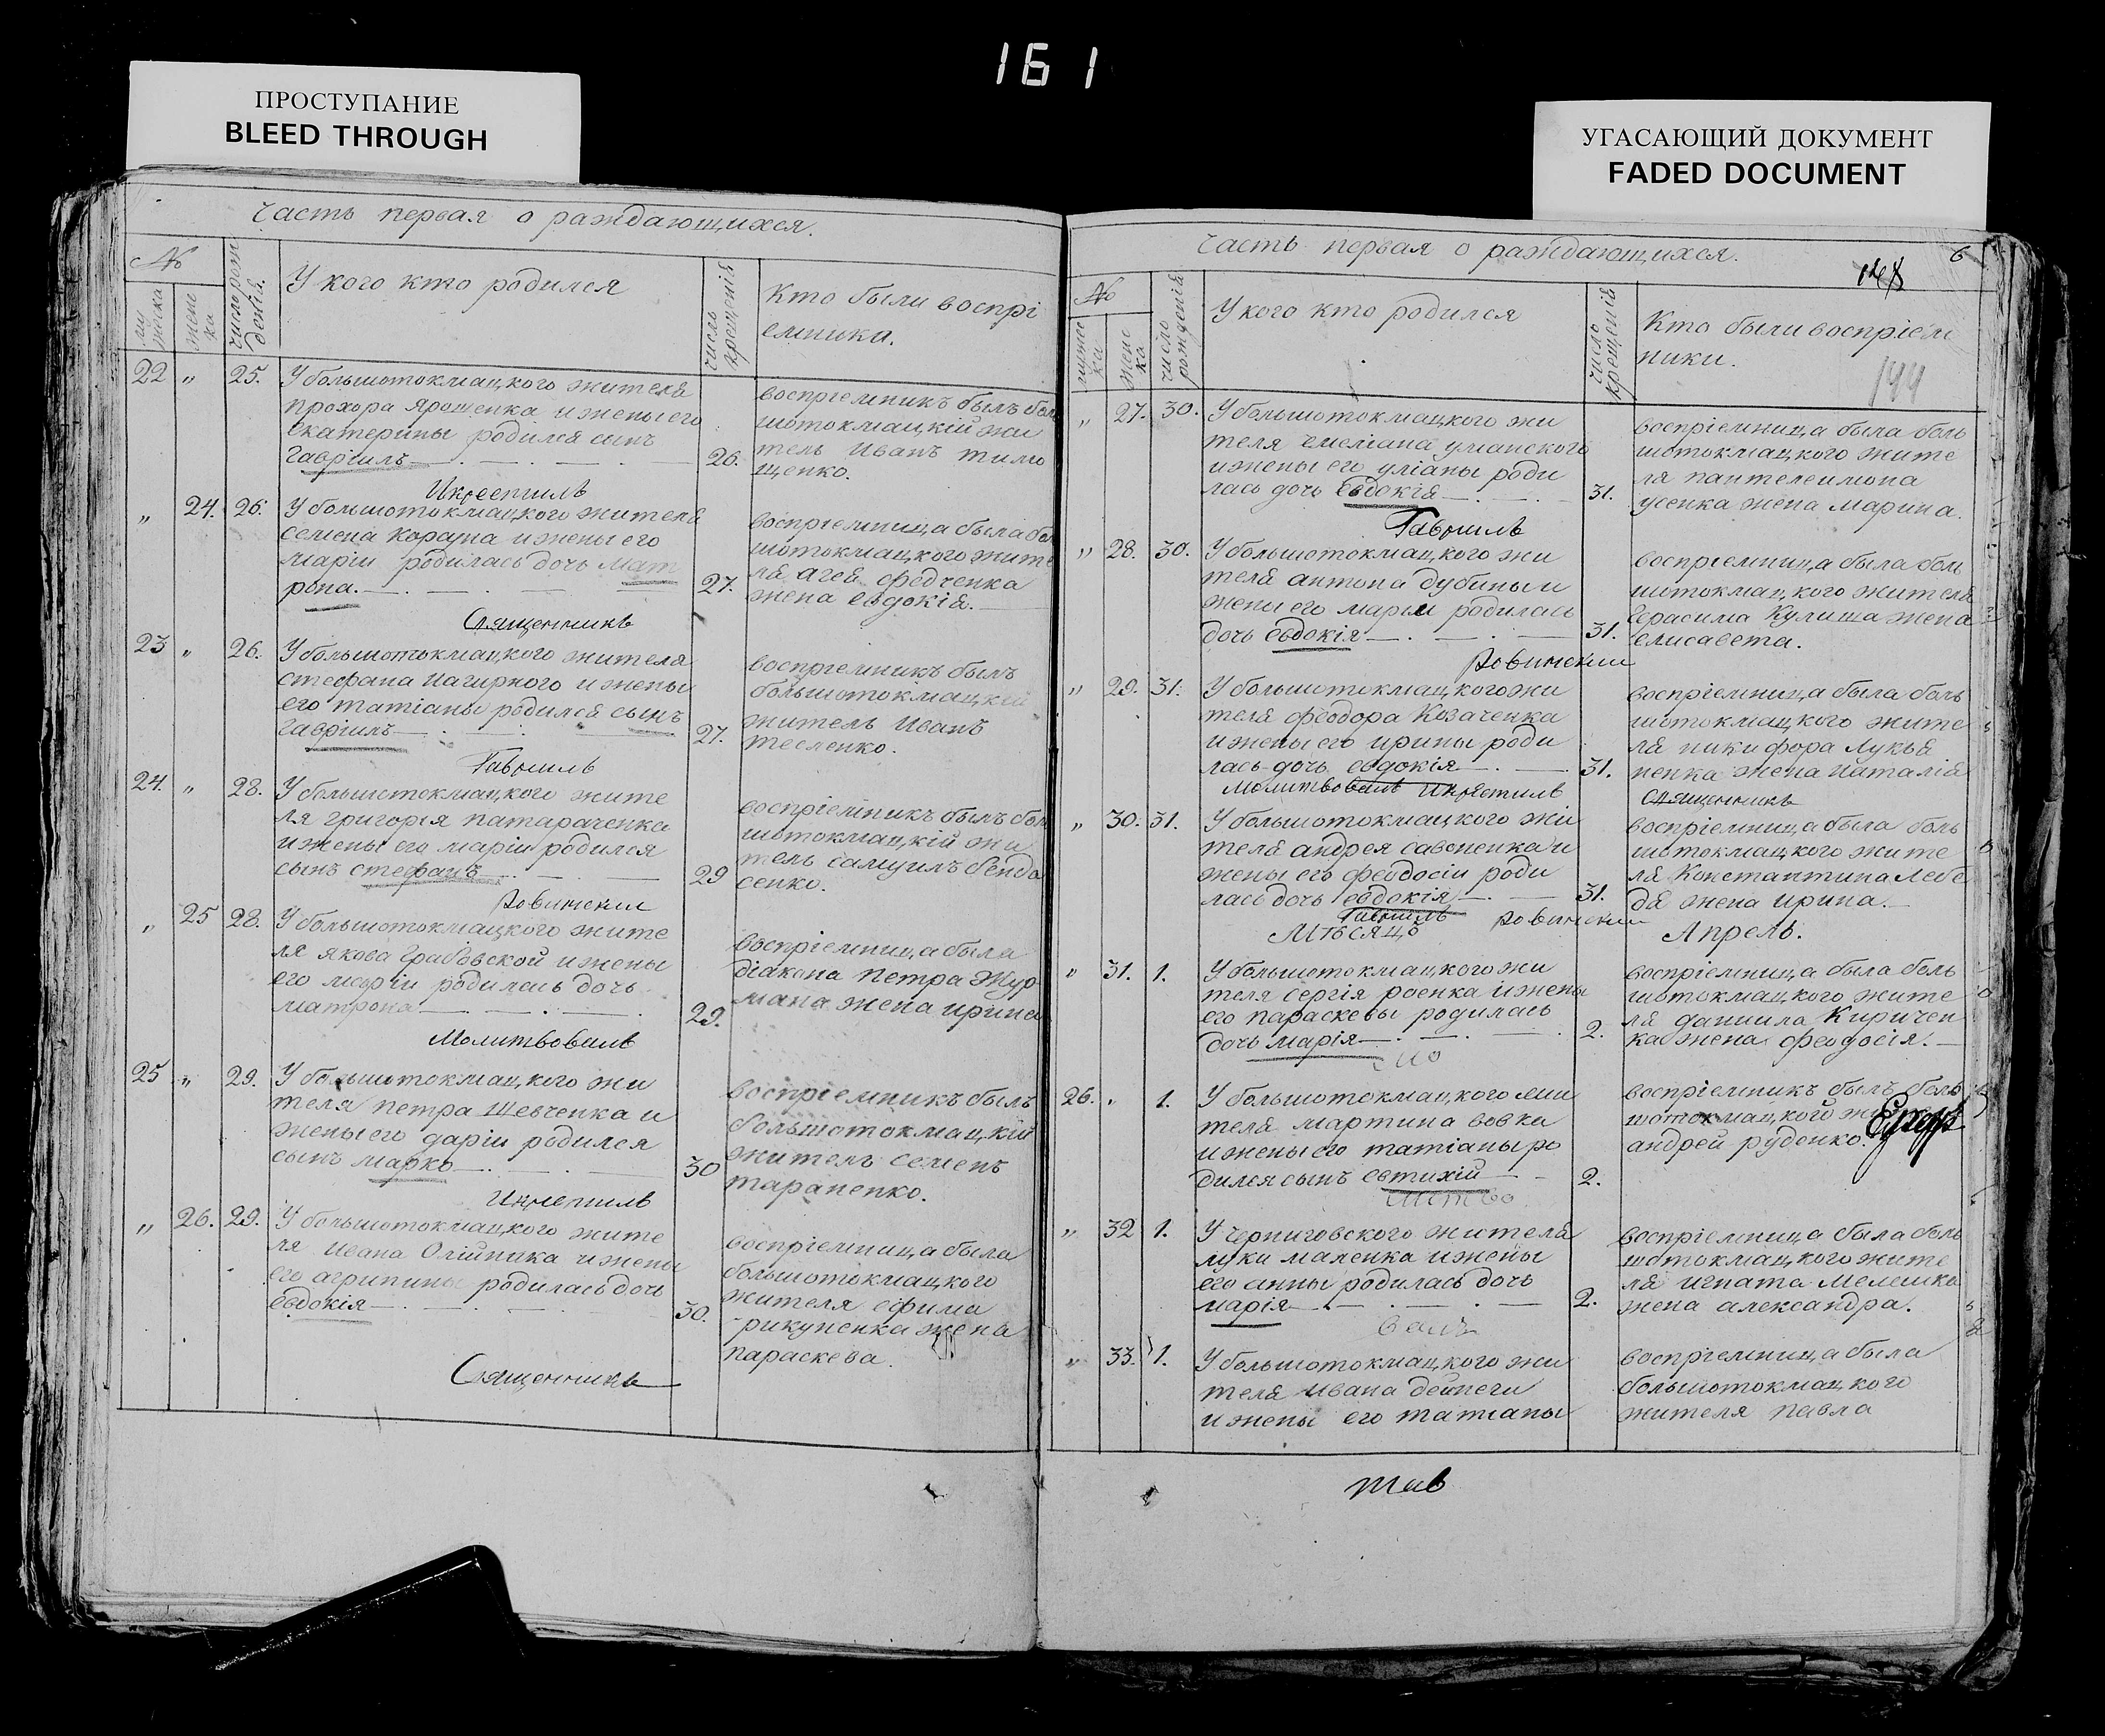 161
ПРОСТУПАНИЕ
BLEED THROUGH
УГАСАЮЩИЙ ДОКУМЕНТ
FADED DOCUMENT
часть первая о раждающихся.
№
му
жска
женс
ка
число рож
денія.
У кого кто родился
число
крещенія
Кто были воспрі
емники.
22 " 25.
У большотокмацкого жителя
прохора Ярошенка и жены его
екатерины родился сынъ
гавріилъ
26.
воспріемникъ былъ бол
шотокмацкій жи
тель Иванъ тимо
щенко.
Икрестилъ
" 24. 26.
У большотокмацкого жителя
семена Корауна и жены его
маріи родилась дочь мат
рона.
27.
воспріемница была бол
шотокмацкого жите
ля агея федченка
жена евдокія.
Священникъ
23 " 26.
У большотокмацкого жителя
стефана нагирного и жены
его татіаны родился сынъ
гавріилъ
27.
воспріемникъ былъ
большотокмацкій
житель Иванъ
тесленко.
Гавриилъ
24. " 28.
У большотокмацкого жите
ля григорія патараченка
и жены его маріи родился
сынъ стефанъ
29
воспріемникъ былъ бол
шотокмацкій жи
тель самуилъ бонда
сенко.
Ровинский
" 25 28.
У большотокмацкого жите
ля якова Грабовской и жены
его маріи родилась дочь
матрона
29.
воспріемница была
діакона петра Жур
мана жена ирина
Молитвовалъ
25 " 29.
У большотокмацкого жи
теля петра Шевченка и
жены его даріи родился
сынъ марко
30
воспріемникъ былъ
большотокмацкій
житель семенъ
тараненко.
Икрестилъ
" 26. 29.
У большотокмацкого жите
ля Ивана Олійника и жены
его агрипины родилась дочь
евдокія
30.
воспріемница была
большотокмацкого
жителя ефима
рикуненка жена
параскева.
Священникъ
часть первая о раждающихся.
6
144
№
женс
ка
число
рожденія
У кого кто родился
число
крещенія
Кто были воспріем
ники.
" 27. 30.
У большотокмацкого жи
теля емеліана уманского
и жены его уліаны роди
лась дочь Евдокія
31.
воспріемница была боль
шотокмацкого жите
ля пантелеимона
усенка жена марина.
Гавриилъ
" 28. 30.
У большотокмацкого жи
теля антона дубины и
жены его маріи родилась
дочь евдокія
31.
воспріемница была боль
шотокмацкого жителя
герасима Кулиша жена
елисавета.
Ровинский
" 29. 31.
У большотокмацкого жи
теля феодора Козаченка
и жены его ирины роди
лась дочь евдокія
31.
воспріемница была боль
шотокмацкого жите
ля никифора лукья
ненка жена наталія
Молитвовалъ Икрестилъ
Священникъ
" 30. 31.
У большотокмацкого жи
теля андрея савоненка и
жены его феодосіи роди
лась дочь евдокія
31.
воспріемница была боль
шотокмацкого жите
ля Константина Лебе
дя жена ирина.
Гавриилъ Ровинский
Мѣсяцъ Апрель.
" 31. 1.
У большотокмацкого жи
теля сергія роенка и жены
его параскевы родилась
дочь марія
2.
воспріемница была боль
шотокмацкого жите
ля даниила Киричен
ка жена феодосія.
мо
26. " 1.
У большотокмацкого жи
теля мартина вовка
и жены его татіаны ро
дился сынъ евтихій
2.
воспріемникъ былъ боль
шотокмацкого
андрей руденко.
литво
" 32 1.
У черниговского жителя
луки маленка и жены
его анны родилась дочь
марія
2.
воспріемница была боль
шотокмацкого жите
ля игната Мелешка
жена александра.
валъ
" 33. 1.
У большотокмацкого жи
теля ивана дейнеги
и жены его татіаны
воспріемница была
большотокмацкого
жителя павла